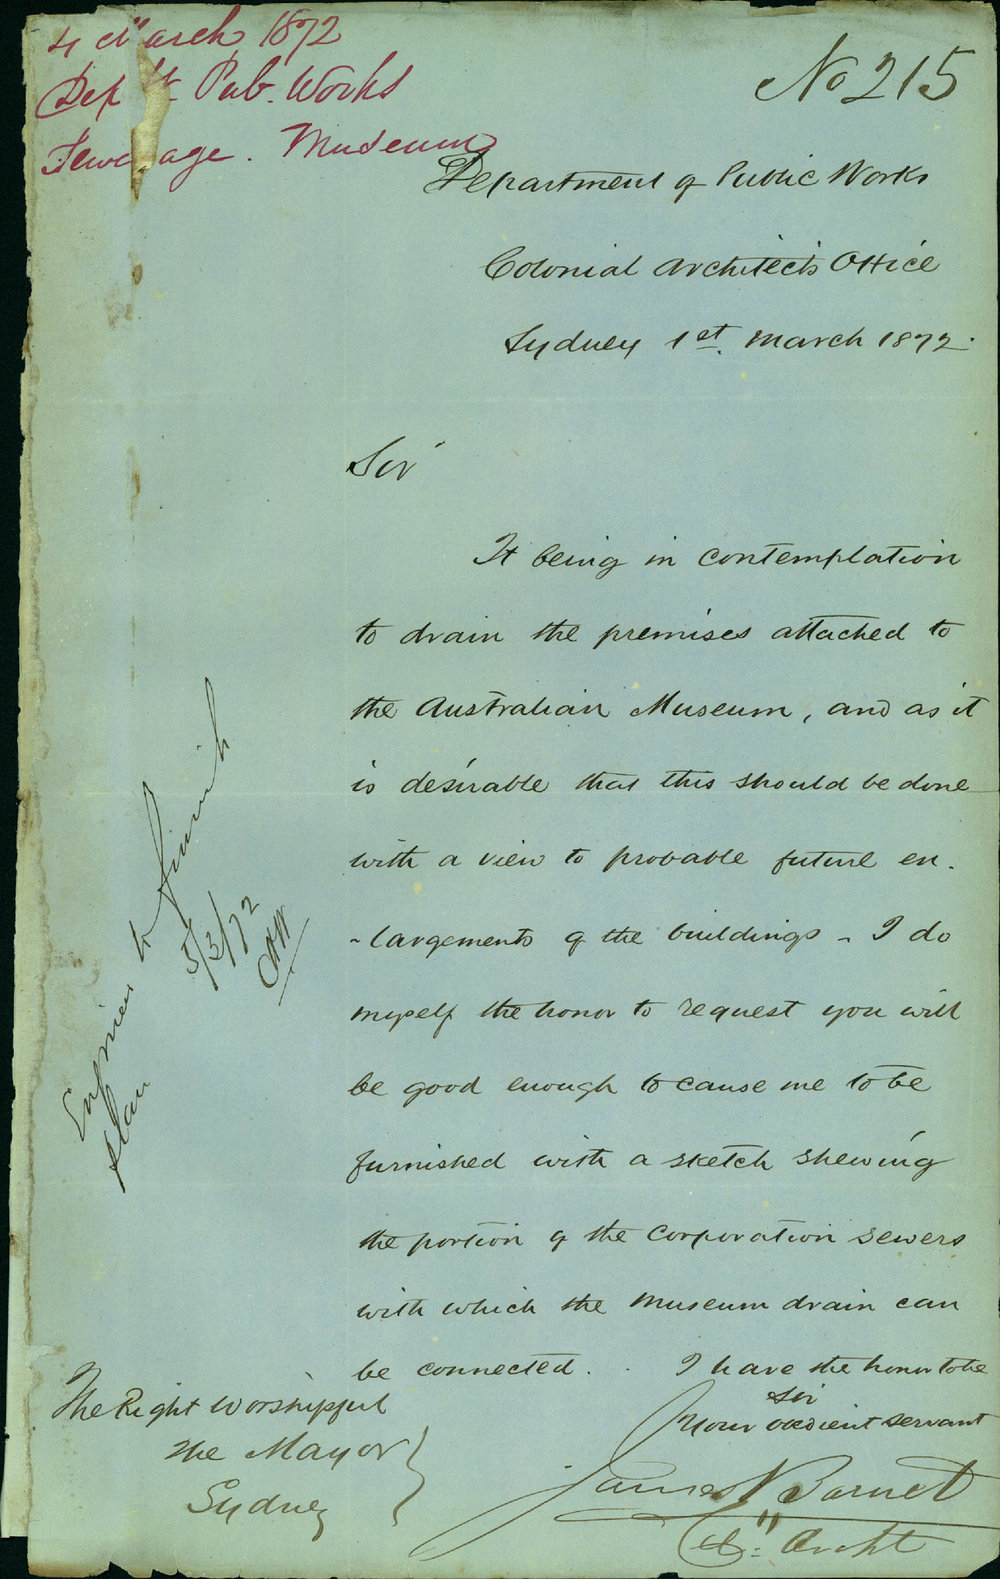 4 March 1872
Dept Pub. Works
Sewerage. Museum
No 215
Department of Public Works
Colonial Architect's Office
Sydney 1st. March 1872.
Sir
It being in contemplation
to drain the premises attached to
the Australian Museum, and as it
is desirable that this should be done
with a view to probable future en-
-largements of the buildings - I do
myself the honor to request you will
be good enough to cause me to be
furnished with a sketch shewing
the portion of the Corporation sewers
with which the Museum drain can
be connected. . I have the honor to be
Sir
Your obedient servant
James Barnet
Archt
The Right Worshipful
The Mayor
Sydney
Engineer to furnish
plan
5/3/72